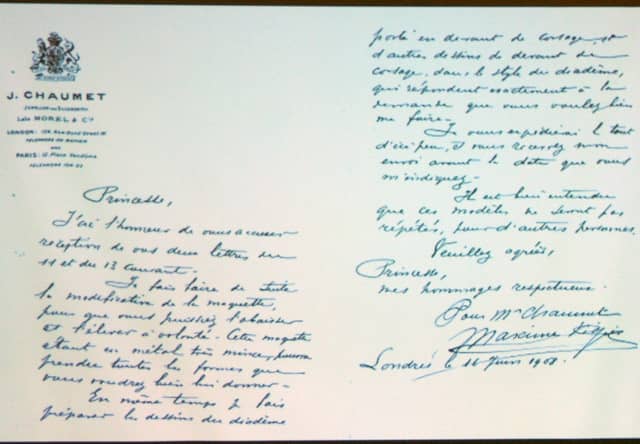 J. CHAUMET
JEWELLER AND SILVERSMITH
Late MOREL & Co
LONDON: 154 New Bond Street W
AND
PARIS: 12, Place Vendôme
Princesse,
J'ai l'honneur de vous accuser
réception de vos deux lettres du
11 et du 13 courant.
Je fais faire de suite
la modification de la maquette,
pour que vous puissiez l'abaisser
et l'élever à volonté. Cette maquette
étant en métal très mince, pourra
prendre toutes les formes que
vous voudrez bien lui donner.
En même temps je fais
préparer les dessins du diadème
porté en devant de corsage, et
d'autres dessins de devant de
corsage, dans le style du diadème,
qui répondent exactement à la
demande que vous voulez bien
me faire.
Je vous expédierai le tout
d'ici peu, et vous recevrez mon
envoi avant la date que vous
m'indiquez.
Il est bien entendu
que ces modèles ne seront pas
répétés, pour d'autres personnes.
Veuillez agréer,
Princesse,
mes hommages respectueux.
Pour Mr Chaumet
Maxime
Londres le 16 Juin 1908.